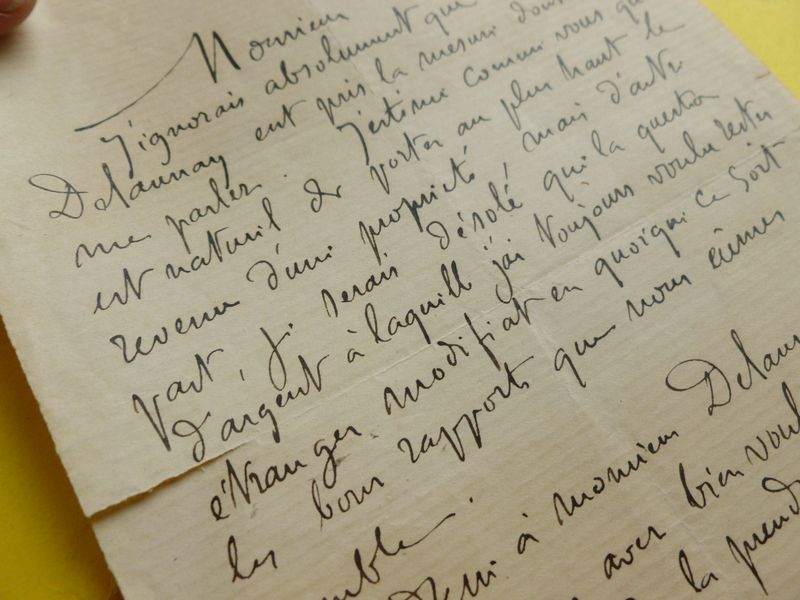 Monsieur
J'ignorais absolument que
Delaunay eut pris la mesure dont
me parlez. J'estime comme vous qu
est naturel de porter au plus haut le
revenu d'une propriété, mais d'autre
part, je serais désolé que la question
d'argent à laquelle j'ai toujours voulu rester
étranger modifiat en quoique ce soit
les bons rapports que nous eûmes
mble.
à monsieur Delaun
avez bien voul
la prend